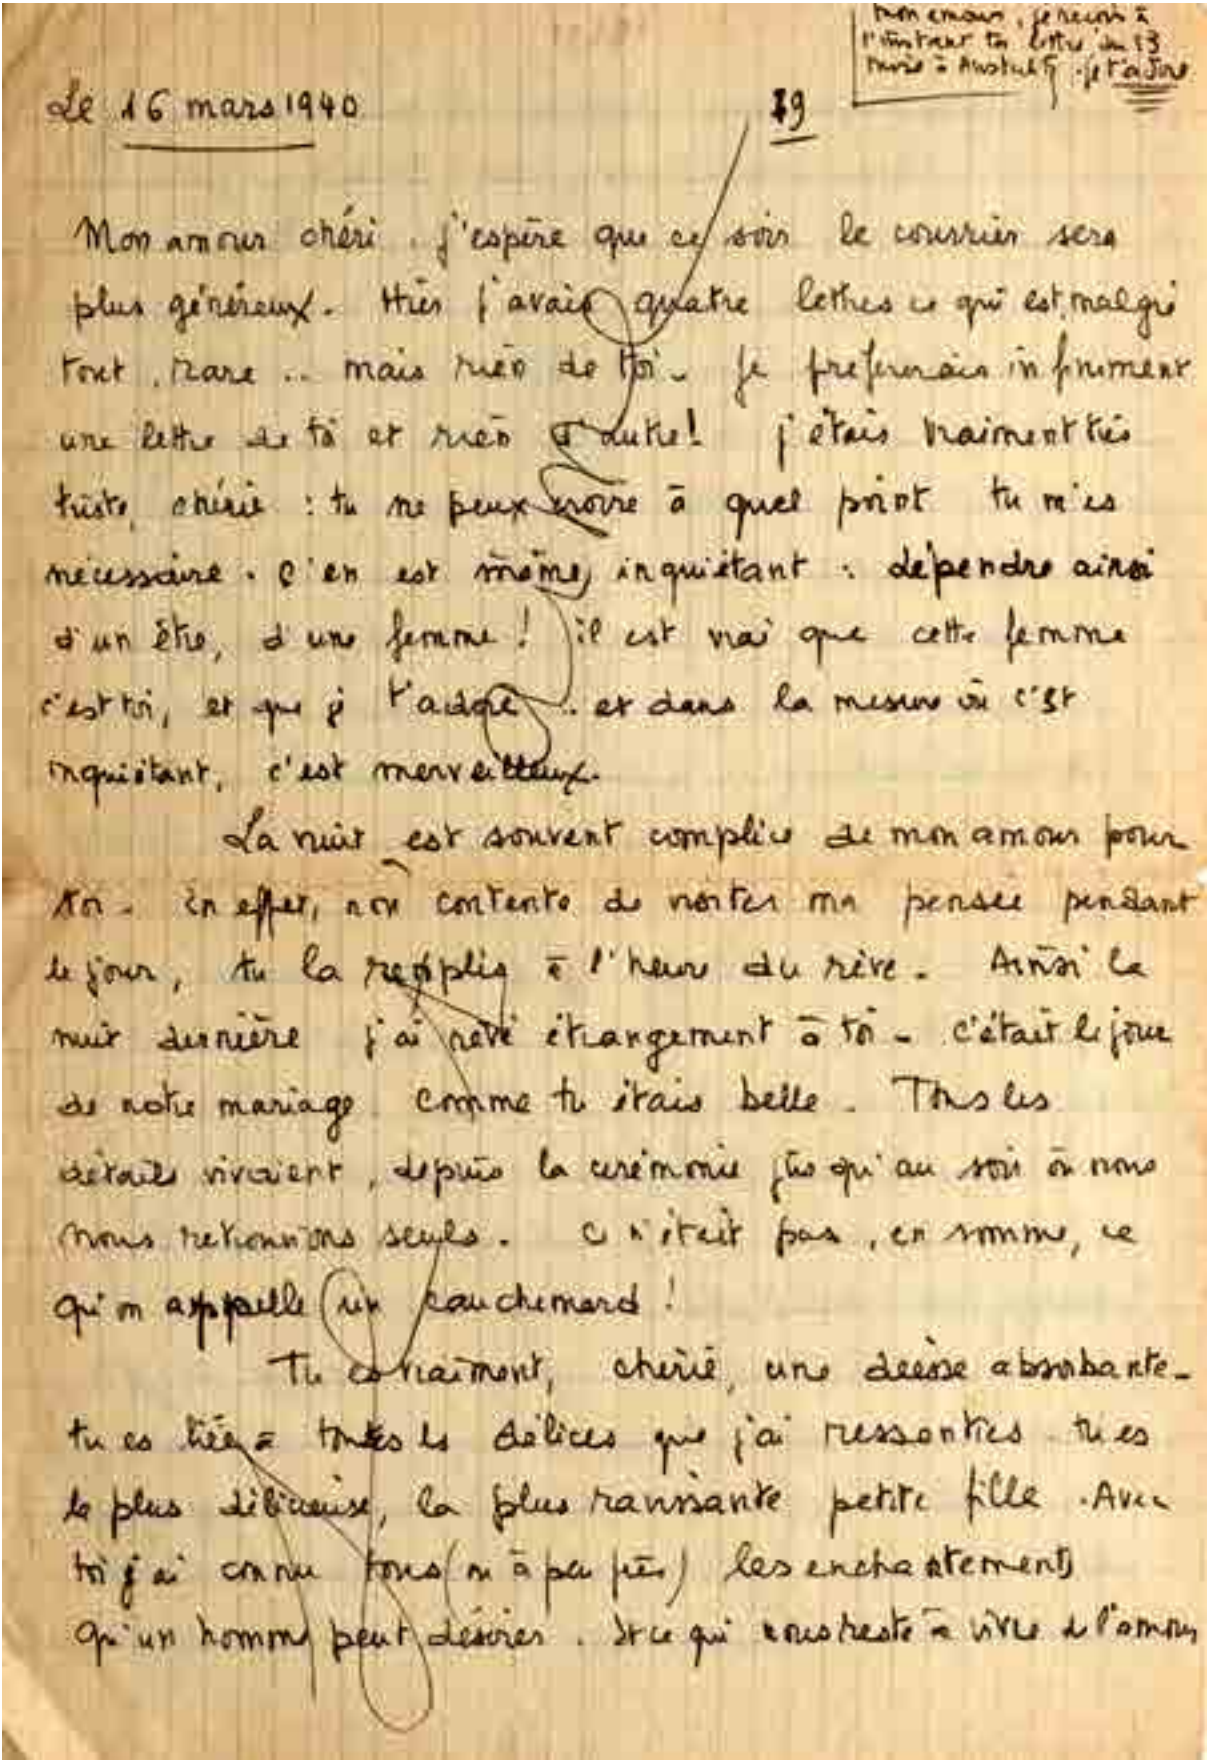 mon amour, je reçois à
l'instant ta lettre du 13
mise à . je t'adore
Le 16 mars 1940
19
Mon amour chéri. j'espère que ce soir le courrier sera
plus généreux. Hier j'avais quatre lettres ce qui est, malgré
tout, rare .. mais rien de toi. je prefererais infiniment
une lettre de toi et rien d'autre! j'étais vraiment très
triste, chérie : tu ne peux croire à quel point tu m'es
nécessaire. C'en est même inquiétant : dépendre ainsi
d'un être, d'une femme! il est vrai que cette femme
c'est toi, et que je t'adore .. et dans la mesure où c'est
inquiétant, c'est merveilleux.
La nuit est souvent complice de mon amour pour
toi. En effet, non contente de visiter ma pensée pendant
le jour, tu la remplis à l'heure du rêve. Ainsi la
nuit dernière j'ai rêvé étrangement à toi - c'était le jour
de notre mariage. comme tu étais belle. Tous les
détails vivaient, depuis la cérémonie jusqu'au soir où nous
nous retrouvions seuls. Ce n'était pas, en somme, ce
qu'on appelle un cauchemard!
Tu es vraiment, chérie, une déesse absorbante.
tu es liée à toutes les délices que j'ai ressenties. tu es
la plus délicieuse, la plus ravissante petite fille. Avec
toi j'ai connu tous (ou à peu près) les enchantements
qu'un homme peut désirer. Et ce qui nous reste à vivre de l'amour